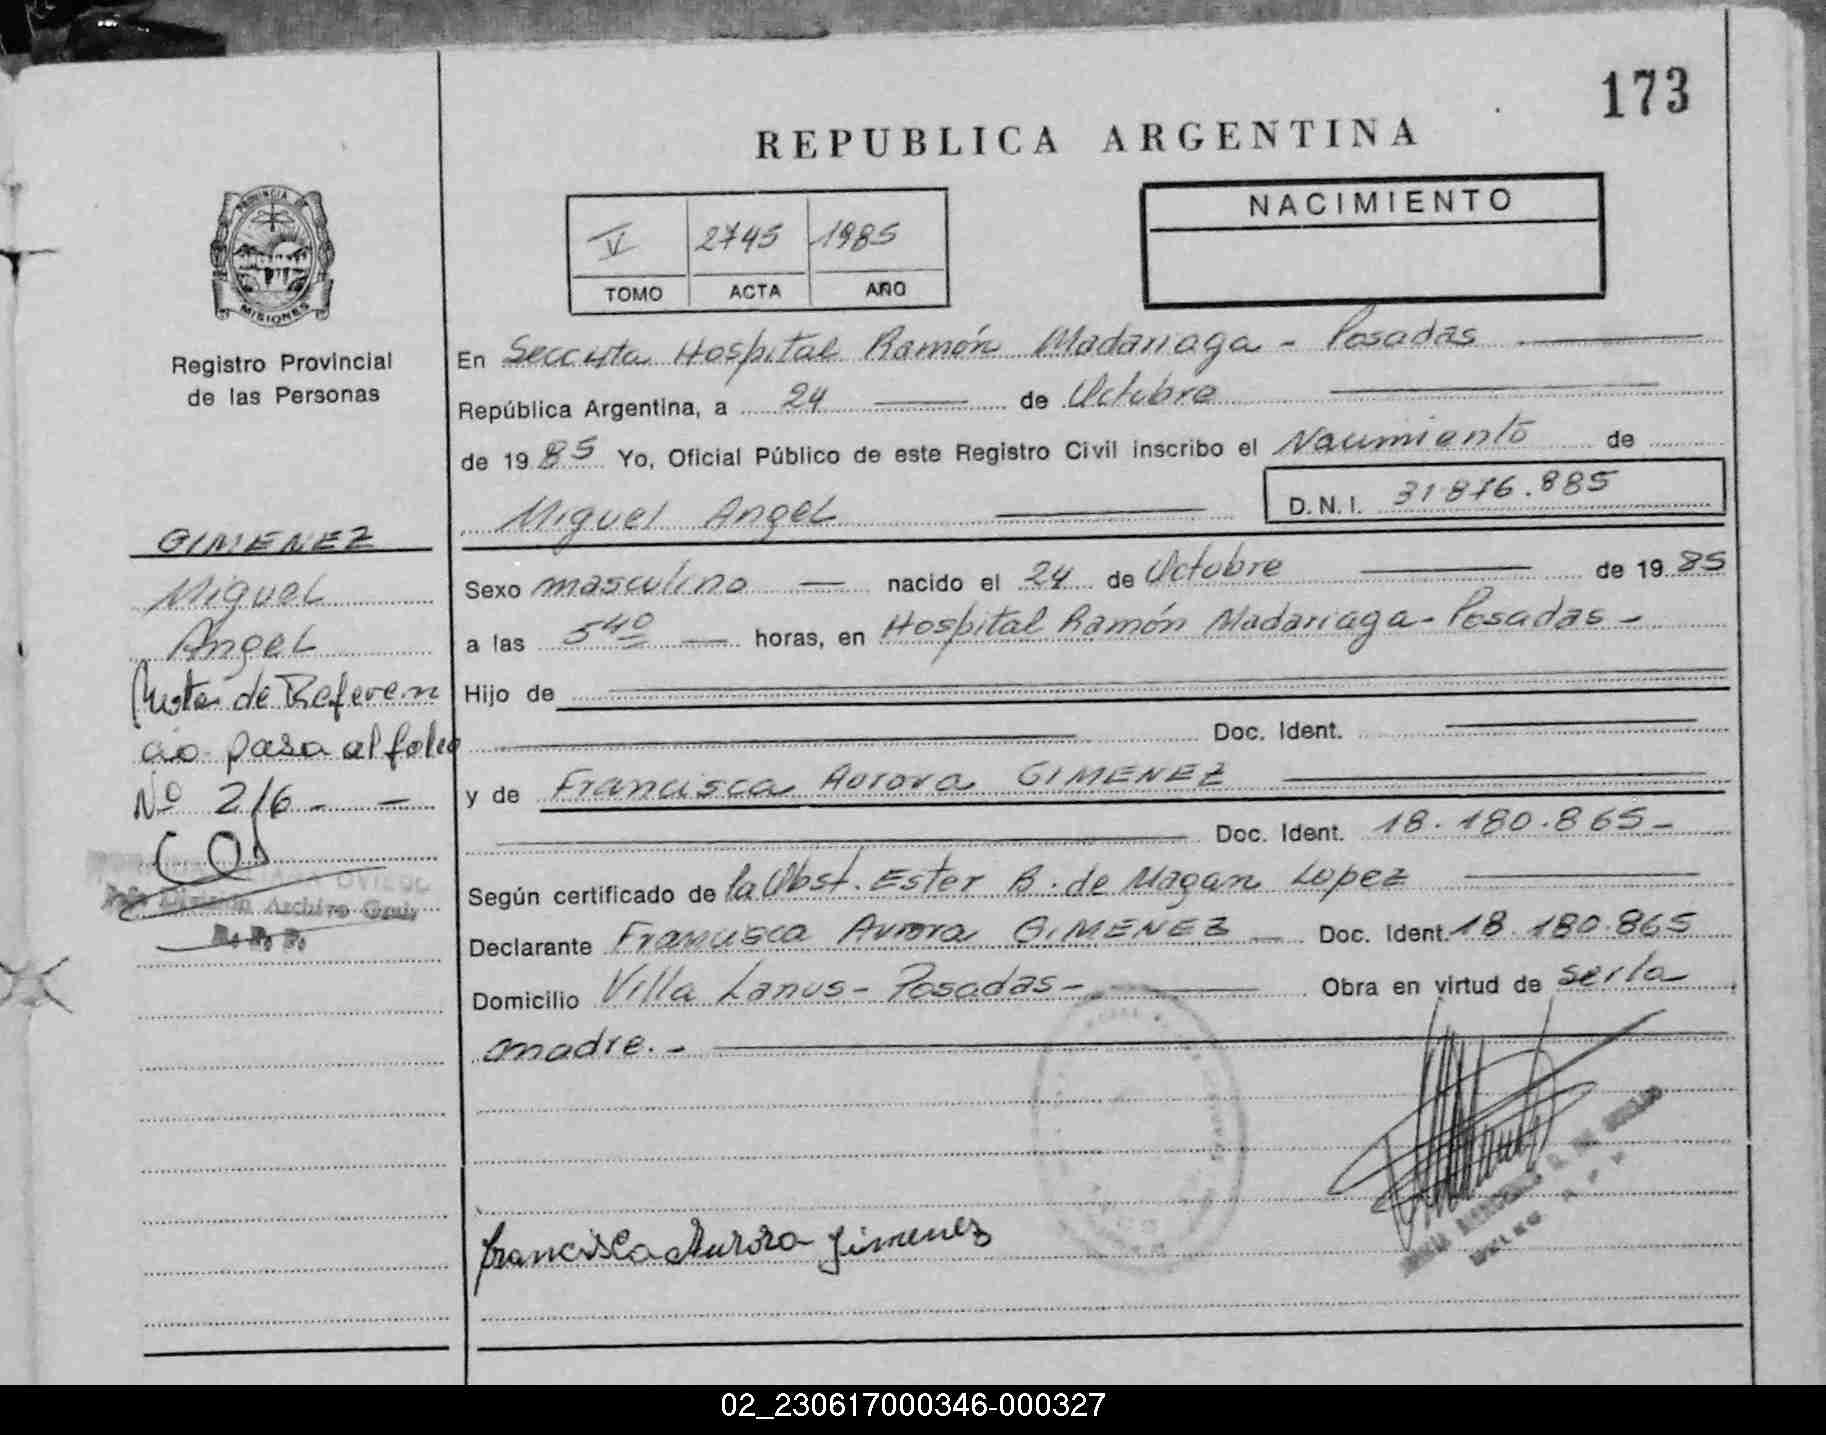 173
REPUBLICA ARGENTINA
PROVINCIA DE
MISIONES
Registro Provincial
de las Personas
V 2745 1985
TOMO ACTA AÑO
NACIMIENTO
En Seccista Hospital Ramón Madariaga - Posadas
República Argentina, a 24 de Octubre
de 1985 Yo, Oficial Público de este Registro Civil inscribo el Nacimiento de
Miguel Angel D.N.I. 31876.885
Sexo masculino nacido el 24 de Octubre de 1985
a las 5 40 horas, en Hospital Ramón Madariaga - Posadas -
Hijo de
Doc. Ident.
y de Francisca Aurora GIMENEZ
Doc. Ident. 18.180.865 -
Según certificado de la Obst. Ester B. de Magan Lopez
Declarante Francisca Aurora GIMENEZ Doc. Ident. 18.180.865
Domicilio Villa Lanus - Posadas - Obra en virtud de ser la
madre. -
Francisca Aurora Jimenez
GIMENEZ
Miguel
Angel
Nota de Referen
cia pasa al folio
Nº 216 - -
OVIEDO
Archivo Gral.
R. P. P.
02_230617000346-000327